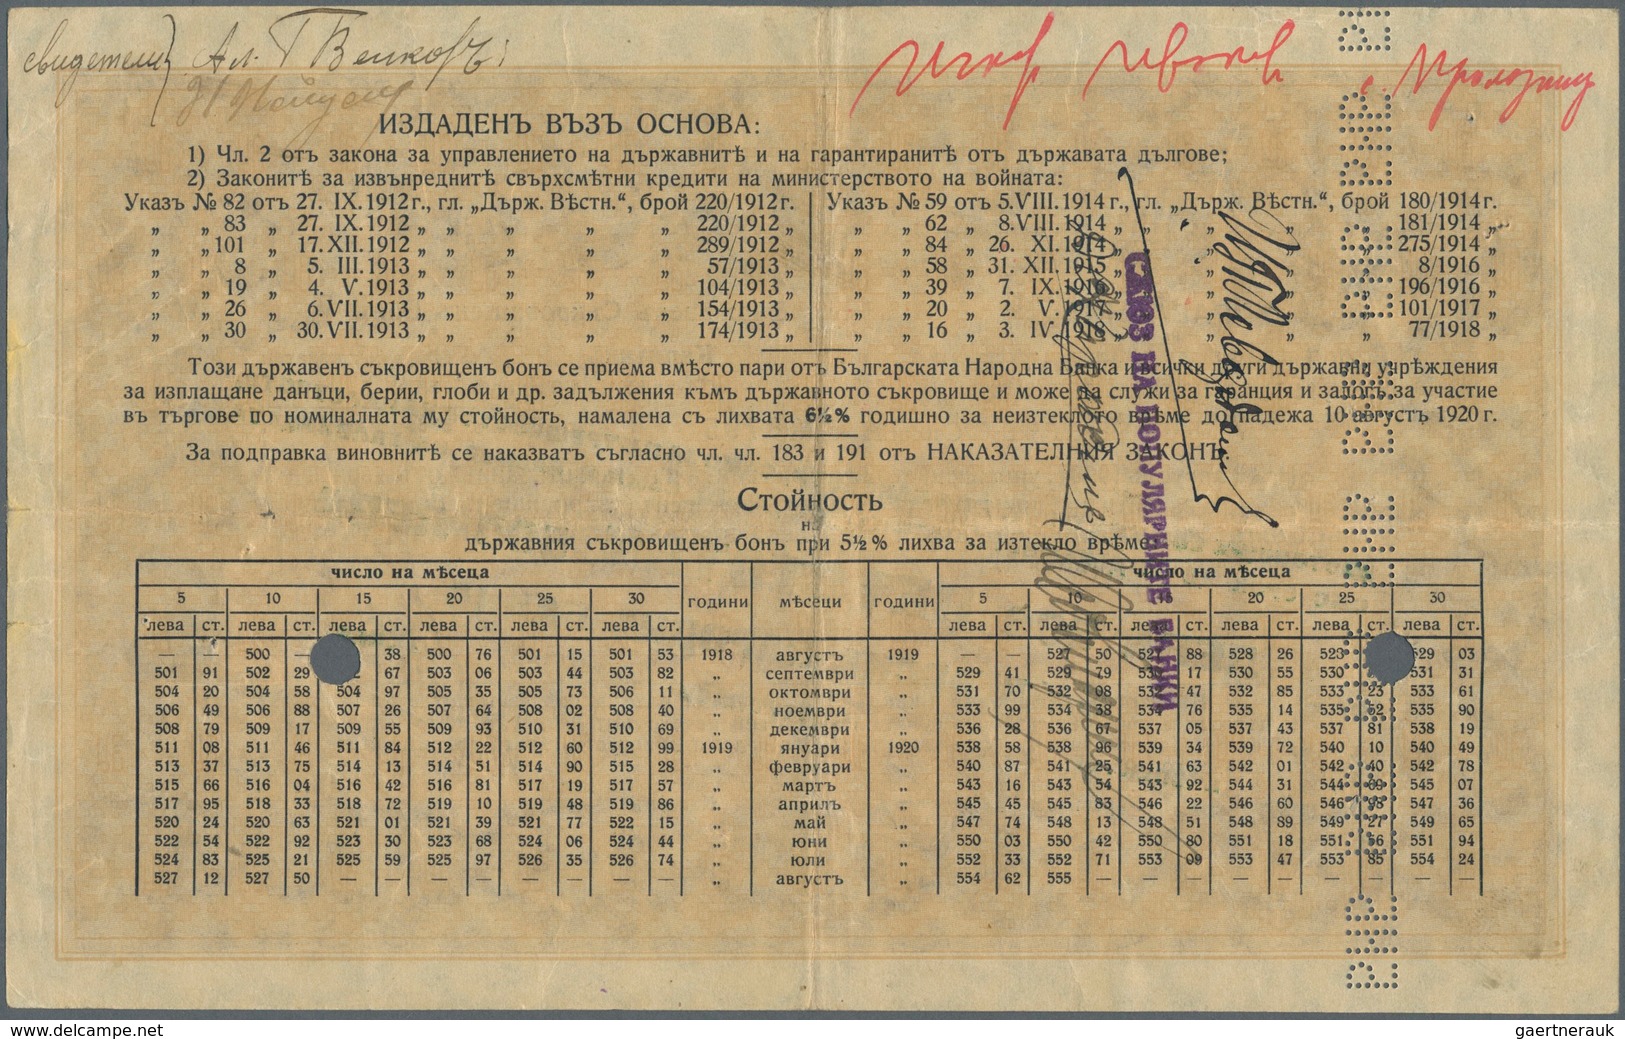 свидетели} Ал. Г Велковъ:
ИЗДАДЕНЪ ВЪЗЪ ОСНОВА:
1) Чл. 2 отъ закона за управлението на държавнитѣ и на гарантиранитѣ отъ държавата дългове;
2) Законитѣ за извънреднитѣ свърхсмѣтни кредити на министерството на войната:
Указъ № 82 отъ 27. IX. 1912 г., гл. „Държ. Вѣстн.“, брой 220/1912 г. Указъ № 59 отъ 5. VIII. 1914 г., гл. „Държ. Вѣстн.“, брой 180/1914 г.
„ „ 83 „ 27. IX. 1912 „ „ „ „ „ 220/1912 „ „ „ 62 „ 8. VIII. 1914 „ „ „ „ „ 181/1914 „
„ „ 101 „ 17. XII. 1912 „ „ „ „ „ 289/1912 „ „ „ 84 „ 26. XI. 1914 „ „ „ „ „ 275/1914 „
„ „ 8 „ 5. III. 1913 „ „ „ „ „ 57/1913 „ „ „ 58 „ 31. XII. 1915 „ „ „ „ „ 8/1916 „
„ „ 19 „ 4. V. 1913 „ „ „ „ „ 104/1913 „ „ „ 39 „ 7. IX. 1916 „ „ „ „ „ 196/1916 „
„ „ 26 „ 6. VII. 1913 „ „ „ „ „ 154/1913 „ „ „ 20 „ 2. V. 1917 „ „ „ „ „ 101/1917 „
„ „ 30 „ 30. VII. 1913 „ „ „ „ „ 174/1913 „ „ „ 16 „ 3. IV. 1918 „ „ „ „ „ 77/1918 „
Този държавенъ съкровищенъ бонъ се приема вмѣсто пари отъ Българската Народна Банка и всички други държавни учрѣждения
за изплащане данъци, берии, глоби и др. задължения къмъ държавното съкровище и може да служи за гаранция и залогъ за участие
въ търгове по номиналната му стойность, намалена съ лихвата 6½% годишно за неизтеклото врѣме до падежа 10 августъ 1920 г.
За подправка виновнитѣ се наказватъ съгласно чл. чл. 183 и 191 отъ НАКАЗАТЕЛНИЯ ЗАКОНЪ
Стойность
на
държавния съкровищенъ бонъ при 5½% лихва за изтекло врѣме
число на мѣсеца години мѣсеци години число на мѣсеца
5 10 15 20 25 30 5 10 15 20 25 30
лева ст. лева ст. лева ст. лева ст. лева ст. лева ст. лева ст. лева ст. лева ст. лева ст. лева ст. лева ст.
— — 500 — 38 500 76 501 15 501 53 1918 августъ 1919 — — 527 50 527 88 528 26 528 529 03
501 91 502 29 67 503 06 503 44 503 82 „ септември „ 529 41 529 79 530 17 530 55 530 531 31
504 20 504 58 504 97 505 35 505 73 506 11 „ октомври „ 531 70 532 08 532 47 532 85 533 23 533 61
506 49 506 88 507 26 507 64 508 02 508 40 „ ноември „ 533 99 534 38 534 76 535 14 535 52 535 90
508 79 509 17 509 55 509 93 510 31 510 69 „ декември „ 536 28 536 67 537 05 537 43 537 81 538 19
511 08 511 46 511 84 512 22 512 60 512 99 1919 януари 1920 538 58 538 96 539 34 539 72 540 10 540 49
513 37 513 75 514 13 514 51 514 90 515 28 „ февруари „ 540 87 541 25 541 63 542 01 542 40 542 78
515 66 516 04 516 42 516 81 517 19 517 57 „ мартъ „ 543 16 543 54 543 92 544 31 544 69 545 07
517 95 518 33 518 72 519 10 519 48 519 86 „ априлъ „ 545 45 545 83 546 22 546 60 546 98 547 36
520 24 520 63 521 01 521 39 521 77 522 15 „ май „ 547 74 548 13 548 51 548 89 549 27 549 65
522 54 522 92 523 30 523 68 524 06 524 44 „ юни „ 550 03 550 42 550 80 551 18 551 56 551 94
524 83 525 21 525 59 525 97 526 35 526 74 „ юли „ 552 33 552 71 553 09 553 47 553 85 554 24
527 12 527 50 — — — — — — — — „ августъ „ 554 62 555 — — — — — — — — —
СЪЮЗЪ НА ПОПУЛЯРНИТЕ БАНКИ
delcampe.net
gaertnerauk